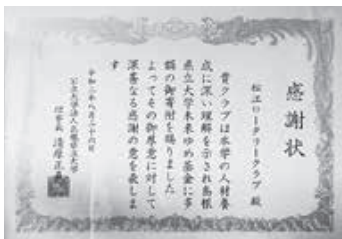 感謝状
松江ロータリークラブ 殿
貴クラブは本学の人材養
成に深い理解を示され島根
県立大学未来ゆめ基金に多
額の御寄附を賜りました
よってその御厚意に対して
深甚なる感謝の意を表しま
す
令和二年八月二十六日
公立大学法人島根県立大学
理事長 清原正義